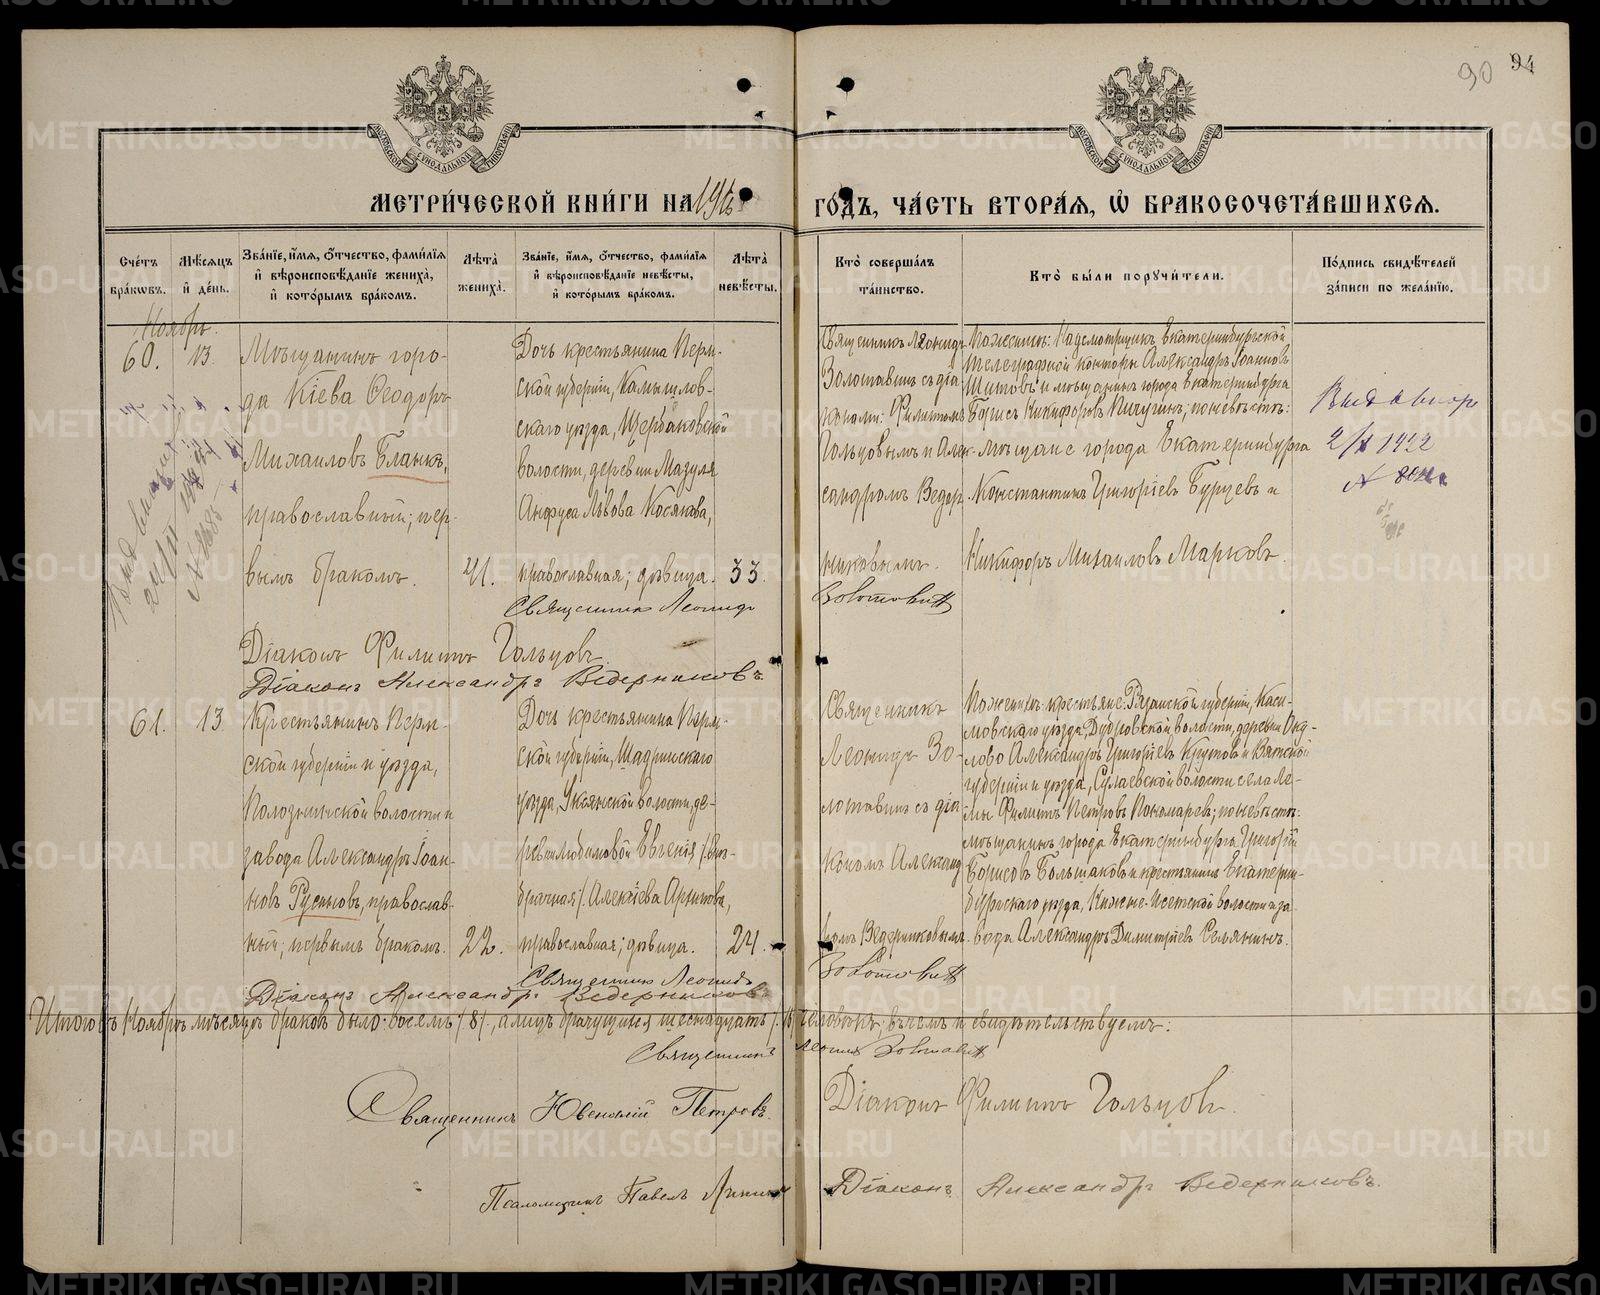 90 94
МОСКОВСКОЙ СѴНОДАЛЬНОЙ ТИПОГРАФІИ
МОСКОВСКОЙ СѴНОДАЛЬНОЙ ТИПОГРАФІИ
МЕТРИ́ЧЕСКОЙ КНИ́ГИ НА 1916
ГО́ДЪ, ЧА́СТЬ ВТОРА́Ѧ, Ѽ БРАКОСОЧЕТА́ВШИХСѦ.
Сче́тъ бра́кѡвъ.
Мѣ́сѧцъ и҆ де́нь.
Зва́нїе, и҆́мѧ, ѻ҆́тчество, фами́лїѧ и҆ вѣроисповѣ́данїе жениха̀, и҆ кото́рымъ бра́комъ.
Лѣ́та жениха̀.
Зва́нїе, и҆́мѧ, ѻ҆́тчество, фами́лїѧ и҆ вѣроисповѣ́данїе невѣ́сты, и҆ кото́рымъ бра́комъ.
Лѣ́та невѣ́сты.
Кто̀ соверша́лъ та́инство.
Кто̀ бы́ли порꙋчи́тели.
По́дпись свидѣ́телей за́писи по жела́нїю.
Ноябрь.
60. 13.
Мѣщанинъ горо-
да Кіева Ѳеодоръ
Михаиловъ Бланкъ,
православный; пер-
вымъ бракомъ.
41.
Дочь крестьянина Перм-
ской губерніи, Камышлов-
скаго уѣзда, Щербаковской
волости, деревни Мазуля
Анфуса Львова Косякова,
православная; дѣвица.
33.
Священникъ Леонидъ
Золотавинъ съ діа-
конами: Филиппомъ
Гольцовымъ и Алек-
сандромъ Ведер-
никовымъ.
По женихѣ: Надсмотрщикъ Екатеринбургской
телеграфной конторы Александръ Іоанновъ
Шитовъ и мѣщанинъ города Екатеринбурга
Борисъ Никифоровъ Пичугинъ; по невѣстѣ:
мѣщане города Екатеринбурга
Константинъ Григоріевъ Бурцевъ и
Никифоръ Михаиловъ Марковъ.
2/X 1922
Священникъ Леонидъ Золотавинъ
Діаконъ Филиппъ Гольцовъ.
Діаконъ Александръ Ведерниковъ.
61. 13.
Крестьянинъ Перм-
ской губерніи и уѣзда,
Полазнинской волости и
завода Александръ Іоан-
новъ Русиновъ, православ-
ный; первымъ бракомъ.
22.
Дочь крестьянина Перм-
ской губерніи, Шадринскаго
уѣзда, Уксянской волости, де-
ревни Любимовой Евгенія /вне-
брачная/ Алексіева Архипова,
православная; дѣвица.
24.
Священникъ
Леонидъ Зо-
лотавинъ съ діа-
кономъ Александ-
ромъ Ведерниковымъ.
По женихѣ: крестьяне: Рязанской губерніи, Каси-
мовскаго уѣзда, Дубровской волости, деревни Оку-
лово Александръ Григоріевъ Крутовъ и Вятской
губерніи и уѣзда, Сулаевской волости села Ле-
мы Филиппъ Петровъ Пономаревъ; по невѣстѣ:
мѣщанинъ города Екатеринбурга Григорій
Борисовъ Большаковъ и крестьянинъ Екатерин-
бургскаго уѣзда, Нижне-Исетской волости и за-
вода Александръ Димитріевъ Селянинъ.
Священникъ Леонидъ Золотавинъ
Діаконъ Александръ Ведерниковъ
Итого въ Ноябрѣ мѣсяцѣ браковъ было: восемь /8/, а лицъ брачущихся шестнадцать /16/ человѣкъ, въ чемъ и свидѣтельствуемъ:
Священникъ Леонидъ Золотавинъ
Священникъ Ювеналій Петровъ.
Діаконъ Филиппъ Гольцовъ.
Псаломщикъ Павелъ
Діаконъ Александръ Ведерниковъ.
METRIKI.GASO-URAL.RU